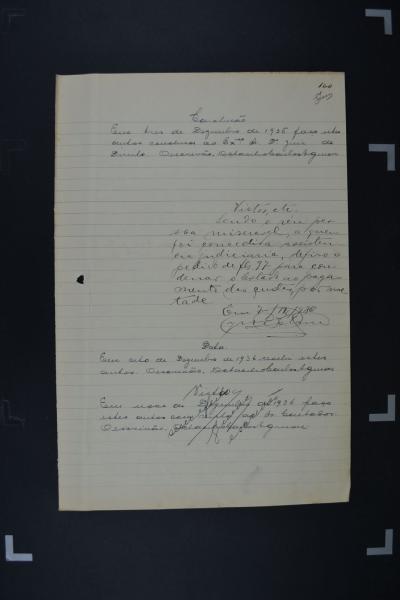 160
Conclusão
Em tres de Dezembro de 1936 faço estes
autos conclusos ao Exmo. Sr. Dr. Juiz de
Direito. O escrivão,
Vistos, etc.
Sendo o réu pes-
soa miseravel, a quem
foi concedida assisten-
cia judiciaria, defiro o
pedido de fls 77 para con-
denar o Estado ao paga-
mento das custas, por me-
tade.
Em 7/12/936
Data
Em oito de Dezembro de 1936 recebi estes
autos. O escrivão,
Em nove de Dezembro de 1936 faço
estes autos com ao Sr. Contador
O escrivão,